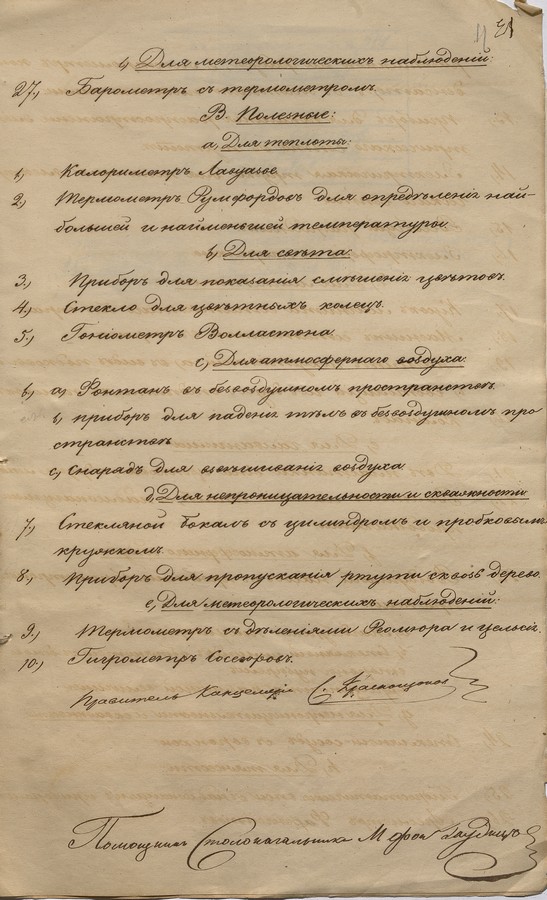 г, Для метеорологическихъ наблюденiй:
27.) Барометръ съ термометромъ.
В. Полезные:
а, Для теплоты:
1.) Калориметръ Лавуазье
2.) Термометръ Румфордовъ для опредѣленiя наи-
большей и наименьшей температуры.
b, Для свѣта:
3.) Приборъ для показанiя смѣшенiя цвѣтовъ.
4.) Стекло для цвѣтныхъ колецъ.
5.) Гонiометръ Волластона.
с, Для атмосфернаго воздуха:
6.) а, Фонтанъ въ безвоздушномъ пространствѣ.
b, приборъ для паденiя тѣлъ въ безвоздушномъ про
странствѣ
с, Снарядъ для взвѣшиванiя воздуха
d, Для непроницательности и скважности
7.) Стекляной бокалъ съ цилиндромъ и пробковымъ
кружкомъ.
8.) Приборъ для пропусканiя ртути сквозь дерево.
е, Для метеорологическихъ наблюденiй:
9.) Термометръ съ дѣленiями Реомюра и Цельсiя.
10.) Гигрометръ Соссюровъ.
Правитель Канцелярiи С. Краснощоковъ
Помощникъ Столоначальника М фон